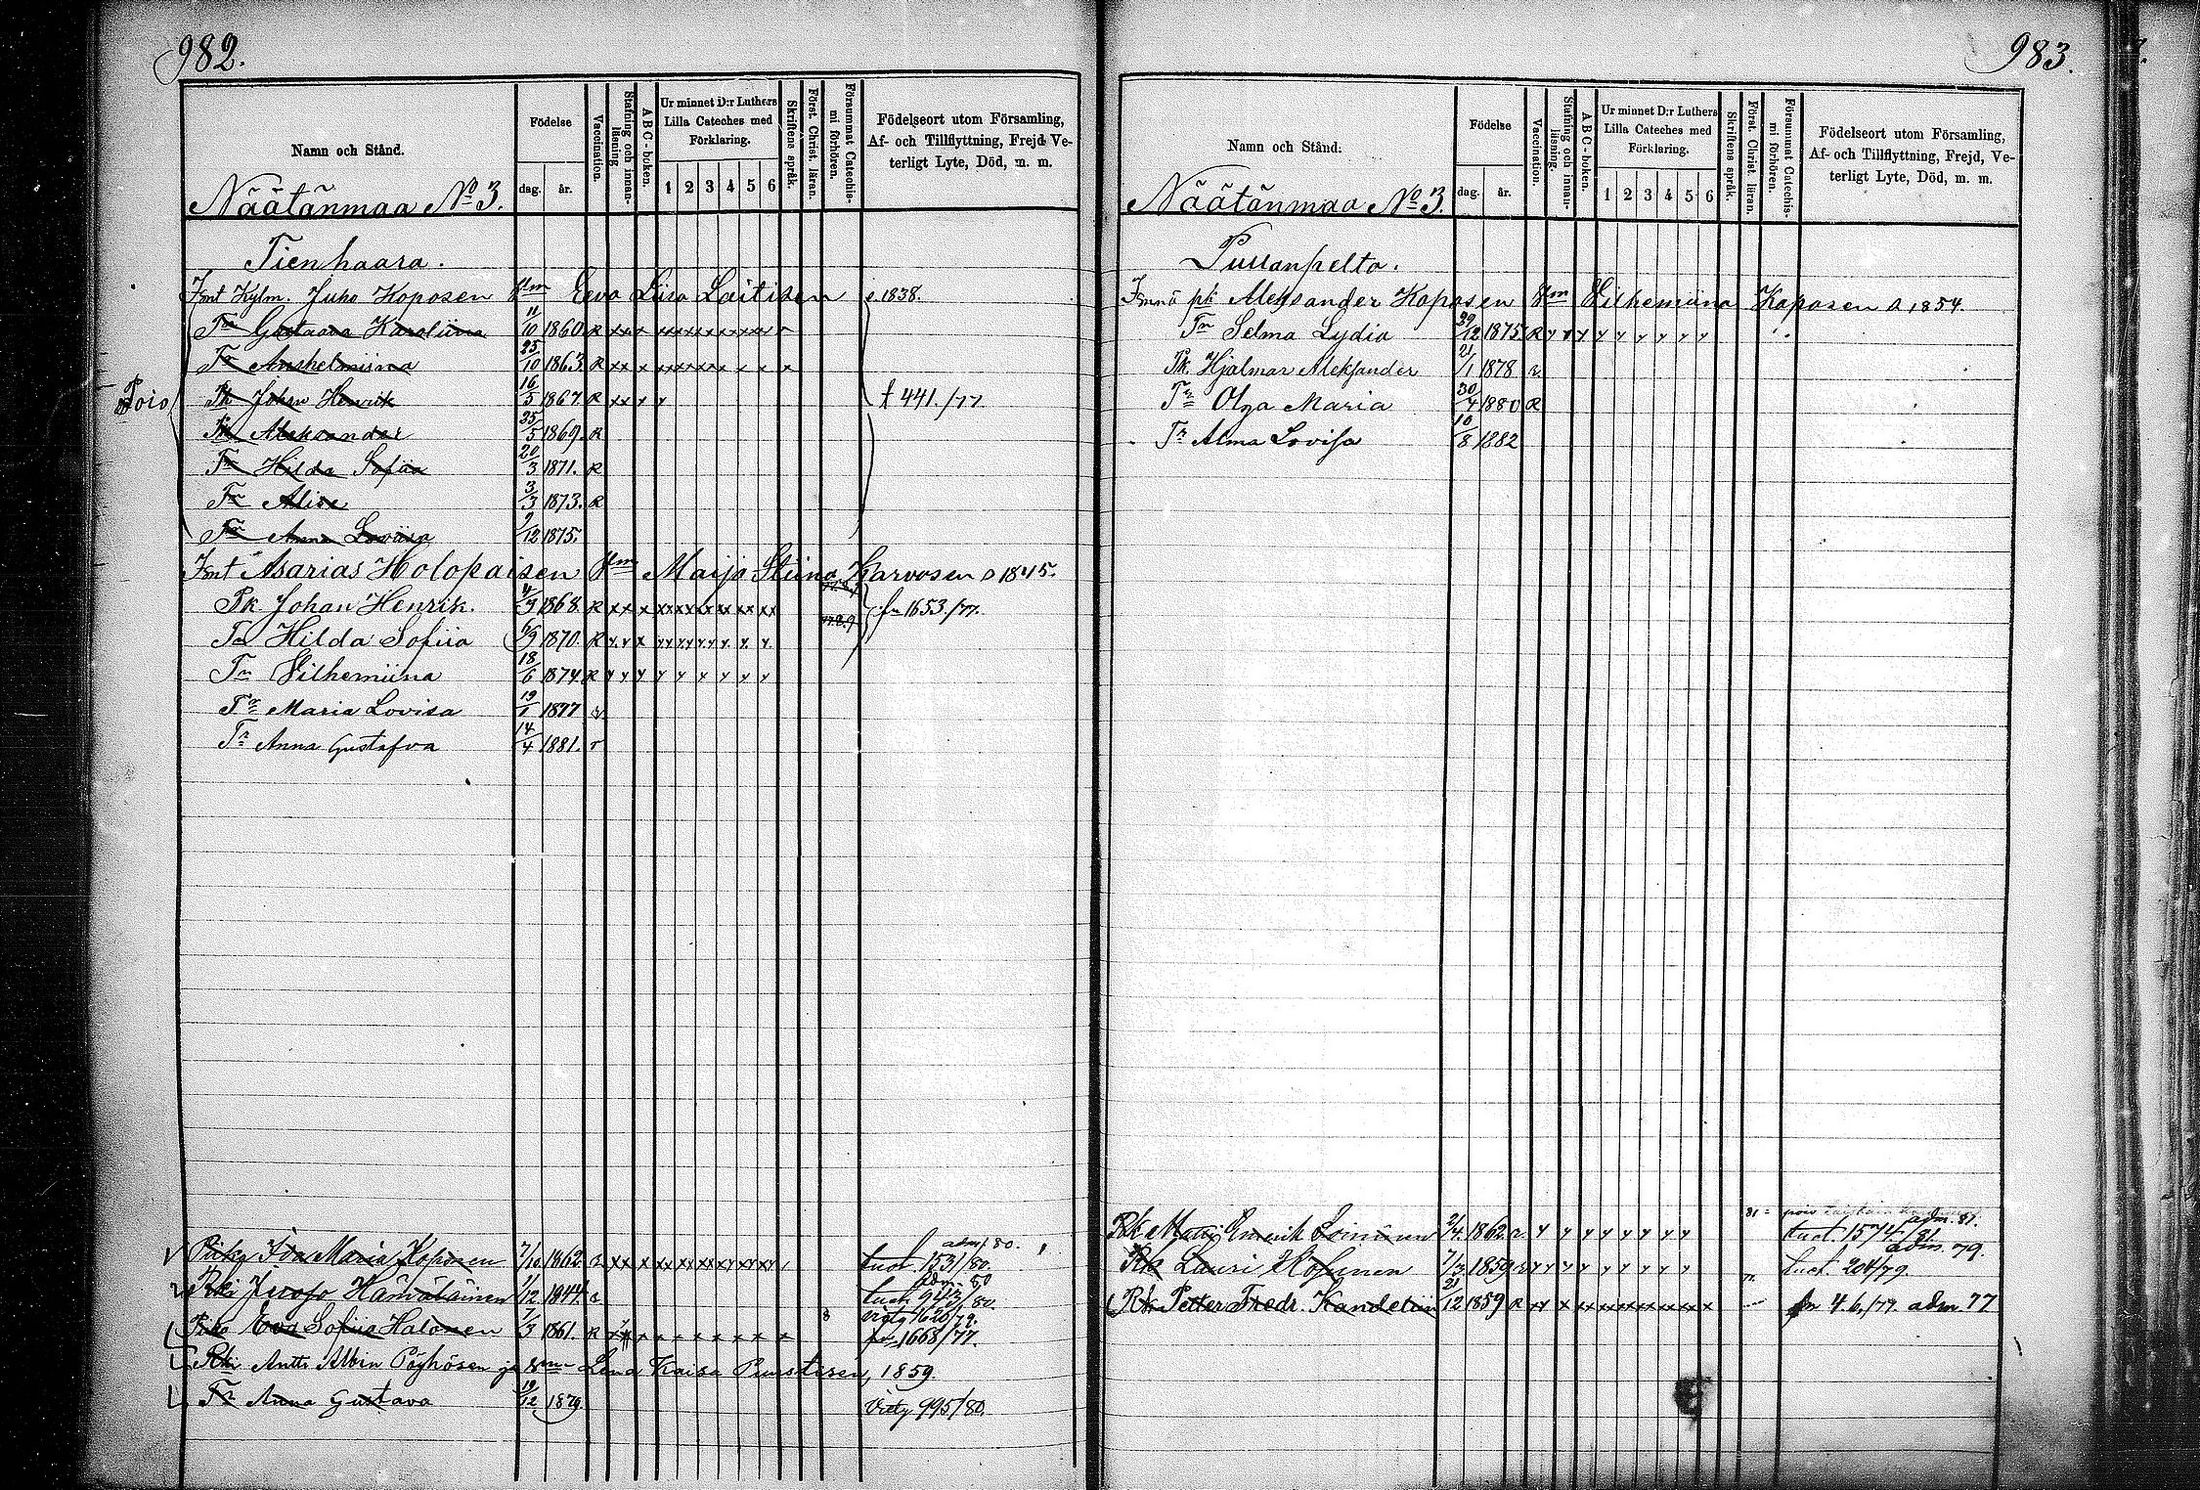 982.
Namn och Stånd.
Födelse
dag.
år.
Vaccination.
Stafning och innan-
läsning.
ABC-boken.
Ur minnet D:r Luthers
Lilla Cateches med
Förklaring.
1 2 3 4 5 6
Skriftens språk.
Först. Christ. läran.
Försummat Catechis-
mi förhören.
Födelseort utom Församling,
Af- och Tillflyttning, Frejd, Ve-
terligt Lyte, Död, m. m.
Näätänmaa No 3.
Tienhaara.
Juho Koposen Eeva Liisa Laitisen s. 1838.
Tr Gustaava Karoliina 11/10 1860 R
Tr Anshelmiina 25/10 1863. R
Pois
Pk Johan Henrik 16/5 1867 R 441./77
Pk Aleksander 25/5 1869. R
Tr Hilda Sofiia 20/3 1871. R
Tr Alise 3/3 1873. R
Tr Anna Loviisa 9/12 1875.
Asarias Holopaisen Maija Stiina Karvosen s 1845.
Pk Johan Henrik. 4/3 1868. R 1653./77.
Tr Hilda Sofiia 6/9 1870. R
Tr Vilhemiina 18/6 1874 R
Tr Maria Lovisa 19/1 1877
Tr Anna Gustafva 14/4 1881. r
adm. 80.
Piika Ida Maria Koponen 7/10. 1862. tuot. 1531/80.
adm. 80
Rki Juoso Hämäläinen 1/12 1844.
Piika Eva Sofiia Halonen 7/3 1861. R 1668/77.
Rki Antti Albin Pöyhösen ja Lena Kaisa Punstisen, 1859.
Tr Anna Gustava 19/12 1879. Vity 995/80.
983.
Namn och Stånd.
Födelse
dag.
år.
Vaccination.
Stafning och innan-
läsning.
ABC-boken.
Ur minnet D:r Luthers
Lilla Cateches med
Förklaring.
1 2 3 4 5 6
Skriftens språk.
Först. Christ. läran.
Försummat Catechis-
mi förhören.
Födelseort utom Församling,
Af- och Tillflyttning, Frejd, Ve-
terligt Lyte, Död, m. m.
Näätänmaa No 3.
Aleksander Koposen Vilhemiina Koposen s 1854.
Tr Selma Lydia 29/12 1875. R
Pk. Hjalmar Aleksander 21/1 1878
Tr Olga Maria 30/4 1880 R
Tr Alma Lovisa 10/8 1882
adm. 81.
Rk Matti 2/4. 1862. tuot. 1574/81.
adm. 79.
Rk Lauri 7/3 1859 tuot. 204/79.
Rk Petter Fredr. Kandeliin 21/12 1859 R 46./77. adm 77